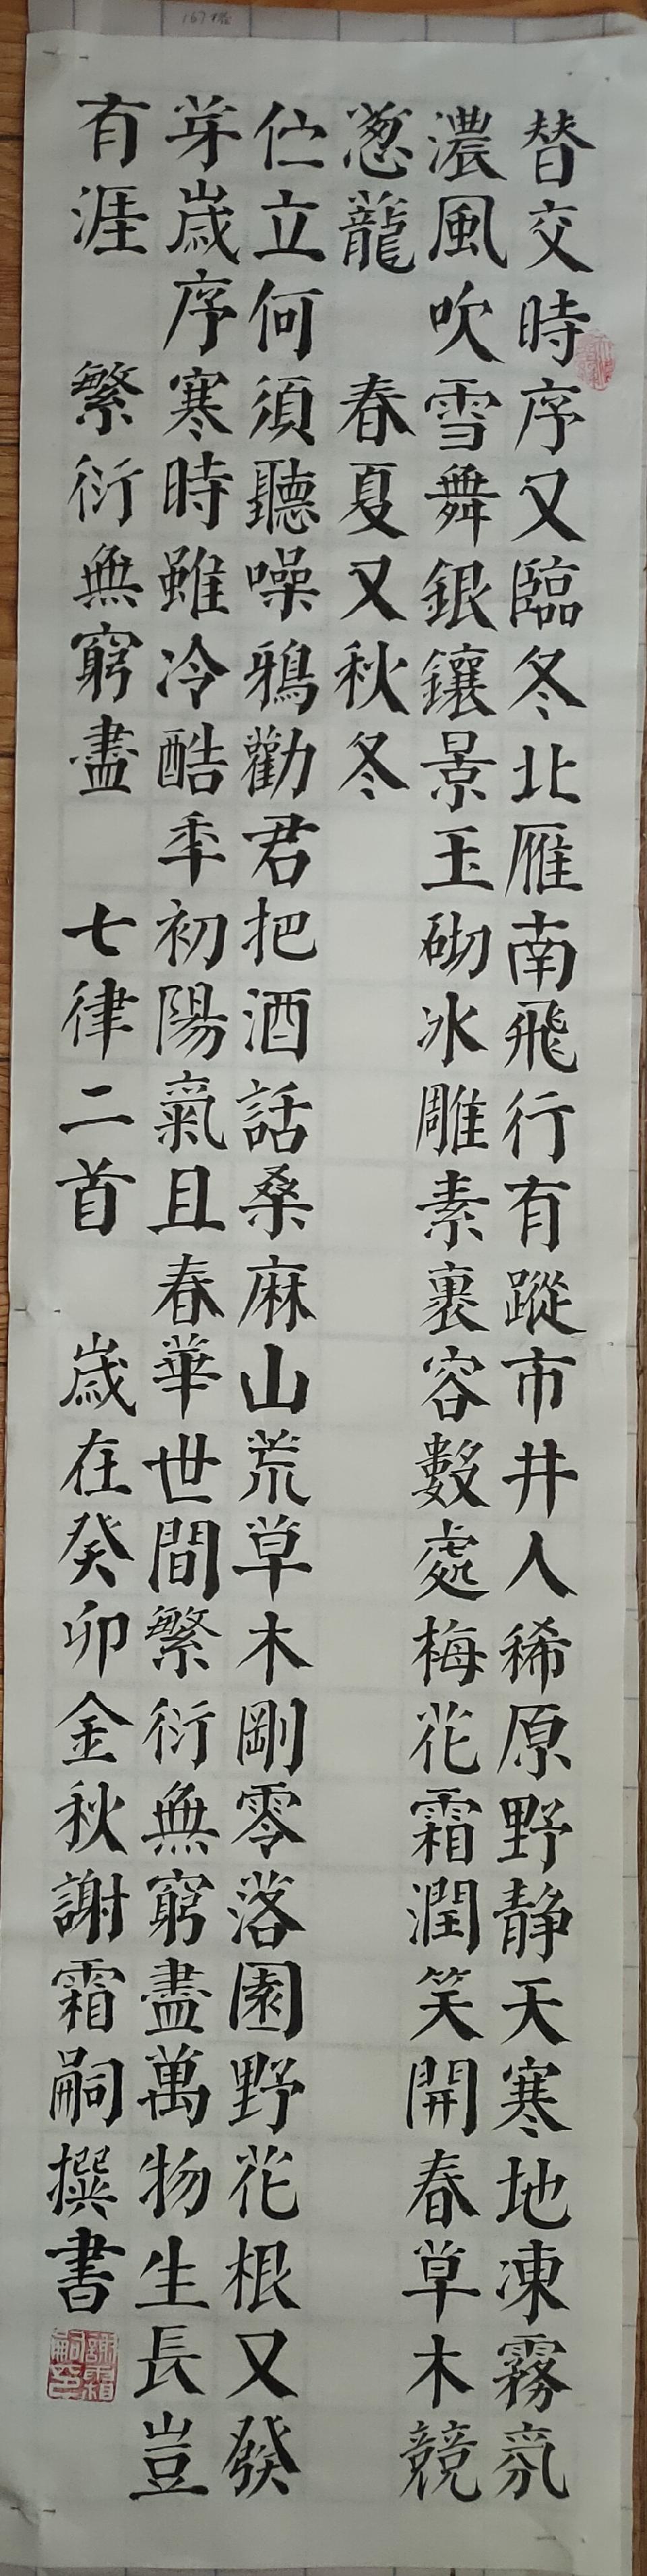 替交時序又臨冬北雁南飛行有蹤市井人稀原野靜天寒地凍霧氛
濃風吹雪舞銀鑲景玉砌冰雕素裹容數處梅花霜潤笑開春草木競
蔥蘢 春夏又秋冬
伫立何須聽噪鴉勸君把酒話桑麻山荒草木剛零落園野花根又發
芽歲序寒時雖冷酷季初陽氣且春華世間繁衍無窮盡萬物生長豈
有涯 繁衍無窮盡 七律二首 歲在癸卯金秋謝霜嗣撰書
謝霜嗣印